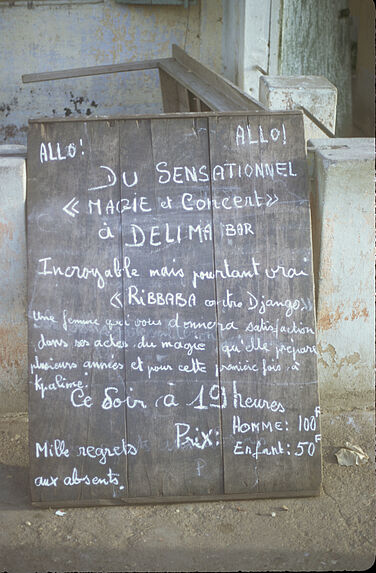 ALLO! ALLO!
DU SENSATIONNEL
« MAGIE et Concert »
à DELIMA BAR
Incroyable mais pourtant vrai
« RiBBABA contre Django »
Une femme qui vous donnera satisfaction
dans ses actes du magie qu'elle prepare
plusieurs années et pour cette première fois à
Kpalimé
Ce Soir à 19 heures
Prix: HOMME: 100F
Enfant: 50F
Mille regrets
aux absents.